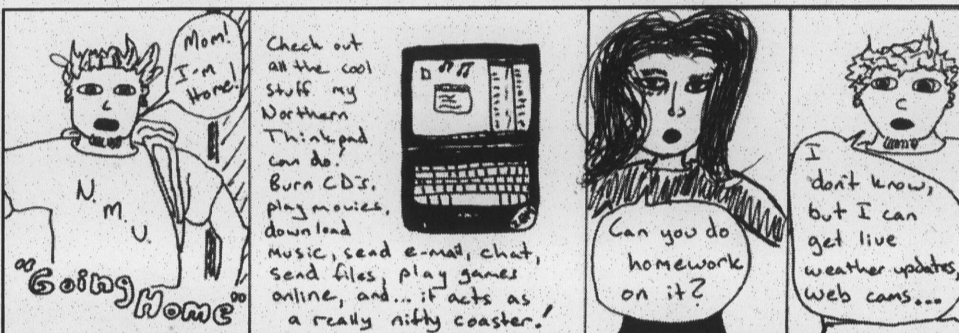 Mom!
I-m
Home!
N.
M.
U.
"Going
Home"
Check out
All the cool
stuff my
Northern
Thinkpad
can do!
Burn CD's,
play movies,
download
music, send e-mail, chat,
send files, play games
online, and... it acts as
a really nifty coaster!
Can you do
homework
on it?
I
don't know,
but I can
get live
weather updates,
web cams...